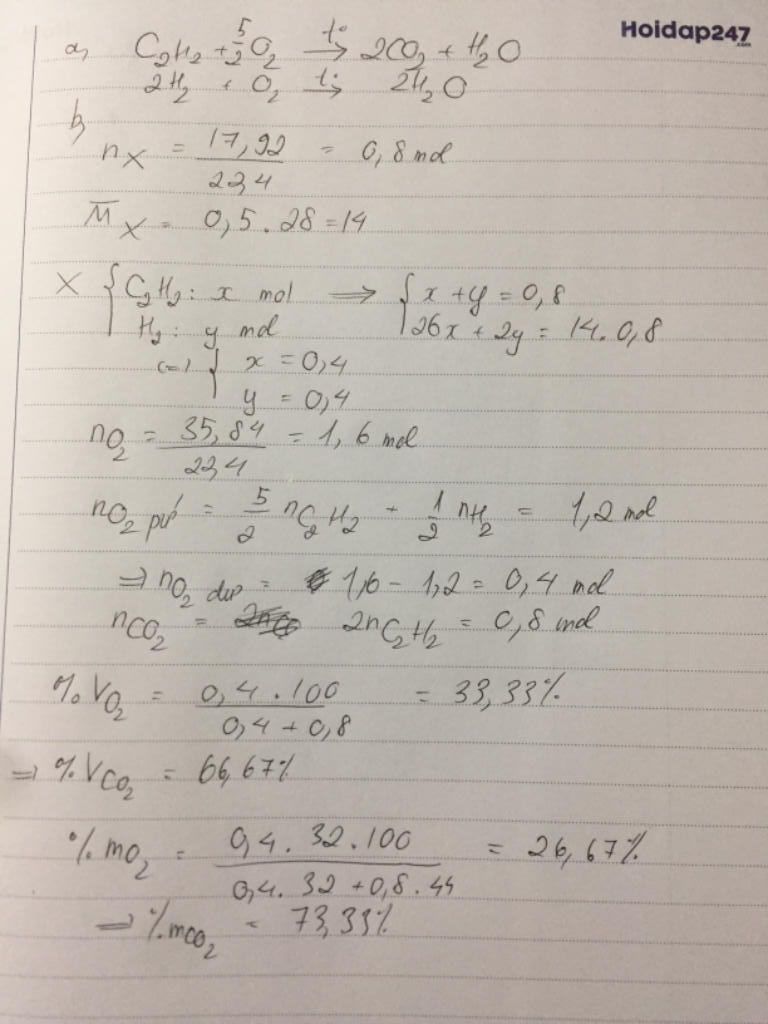 Hoidap247.com
a, C2H2 + 5/2 O2 t°→ 2CO2 + H2O
2H2 + O2 t°→ 2H2O
b,
nX = 17,92/22,4 = 0,8 mol
M̅X = 0,5 . 28 = 14
X { C2H2: x mol ⟹ { x + y = 0,8
H2: y mol 26x + 2y = 14. 0,8
<=> { x = 0,4
y = 0,4
nO2 = 35,84/22,4 = 1,6 mol
nO2 pứ = 5/2 nC2H2 + 1/2 nH2 = 1,2 mol
=> nO2 dư = 1,6 - 1,2 = 0,4 mol
nCO2 = 2nC2H2 = 0,8 mol
%VO2 = 0,4 . 100/0,4 + 0,8 = 33,33%
=> %VCO2 = 66,67%
%mO2 = 0,4. 32. 100/0,4. 32 + 0,8. 44 = 26,67%
=> %mCO2 = 73,33%